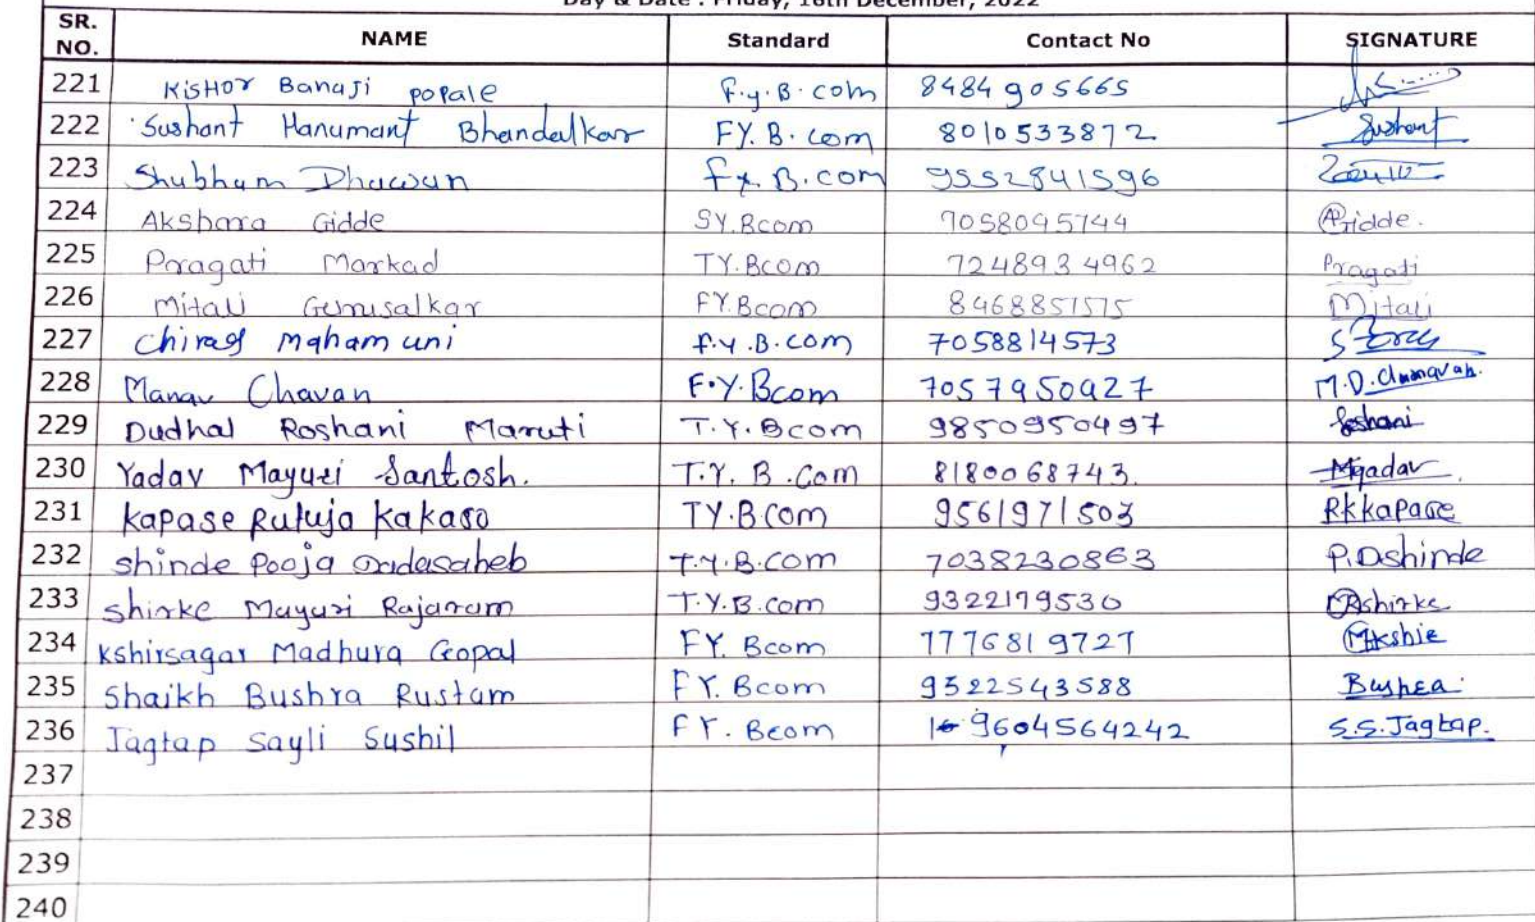 Day & Date : Friday, 16th December, 2022
SR. NO. NAME Standard Contact No SIGNATURE
221 Kishor Banaji popale F.y.B.com 8484905665
222 Sushant Hanumant Bhandalkar FY.B.com 8010533872 Sushant
223 Shubham Dhawan fy.B.com 9552841596
224 Akshara Gidde SY.Bcom 7058095744 Gidde.
225 Pragati Markad TY.Bcom 7248934962 Pragati
226 Mitali FY.Bcom 8468851575 Mitali
227 Chirag Mahamuni f.y.B.com 7058814573
228 Manav Chavan F.Y.Bcom 7057950927 M.D.
229 Dudhal Roshani Maruti T.Y.Bcom 9850950497 Roshani
230 Yadav Mayuri Santosh. T.Y.B.Com 8180068743. Myadav
231 Kapase Rutuja Kakaso TY.B.Com 9561971503 Rkkapase
232 shinde Pooja Dadasaheb T.Y.B.Com 7038230863 P.Dshinde
233 Shirke Mayuri Rajaram T.Y.B.com 9322179530 shirke
234 Kshirsagar Madhura Gopal FY. Bcom 7776819727
235 Shaikh Bushra Rustam FY. Bcom 9322543588 Bushra
236 Jagtap Sayli Sushil FY. Bcom 9604564242 S.S.Jagtap.
237
238
239
240